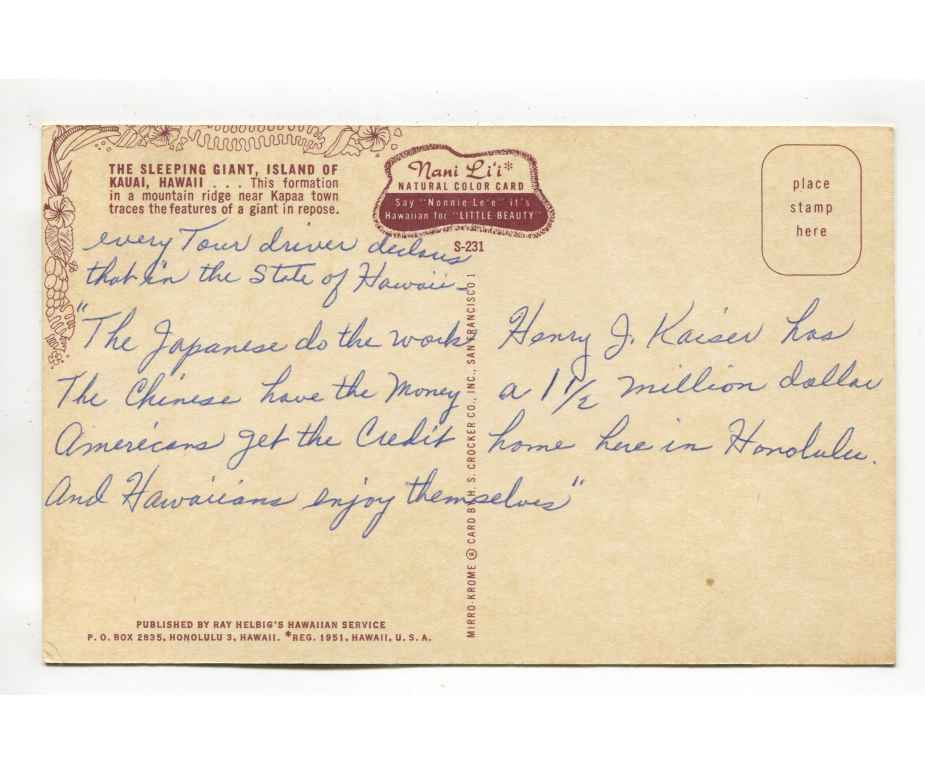 THE SLEEPING GIANT, ISLAND OF
KAUAI, HAWAII . . . This formation
in a mountain ridge near Kapaa town
traces the features of a giant in repose.
Nani Li'i*
NATURAL COLOR CARD
Say "Nonnie Le'e" it's
Hawaiian for "LITTLE BEAUTY"
S-231
place
stamp
here
every Tour driver declares
that in the State of Hawaii—
"The Japanese do the work
The Chinese have the Money
Americans get the Credit
And Hawaiians enjoy themselves"
Henry J. Kaiser has
a 1 1/2 million dollar
home here in Honolulu.
MIRRO-KROME ® CARD BY H. S. CROCKER CO., INC., SAN FRANCISCO 1
PUBLISHED BY RAY HELBIG'S HAWAIIAN SERVICE
P. O. BOX 2835, HONOLULU 3, HAWAII. *REG. 1951, HAWAII, U. S. A.